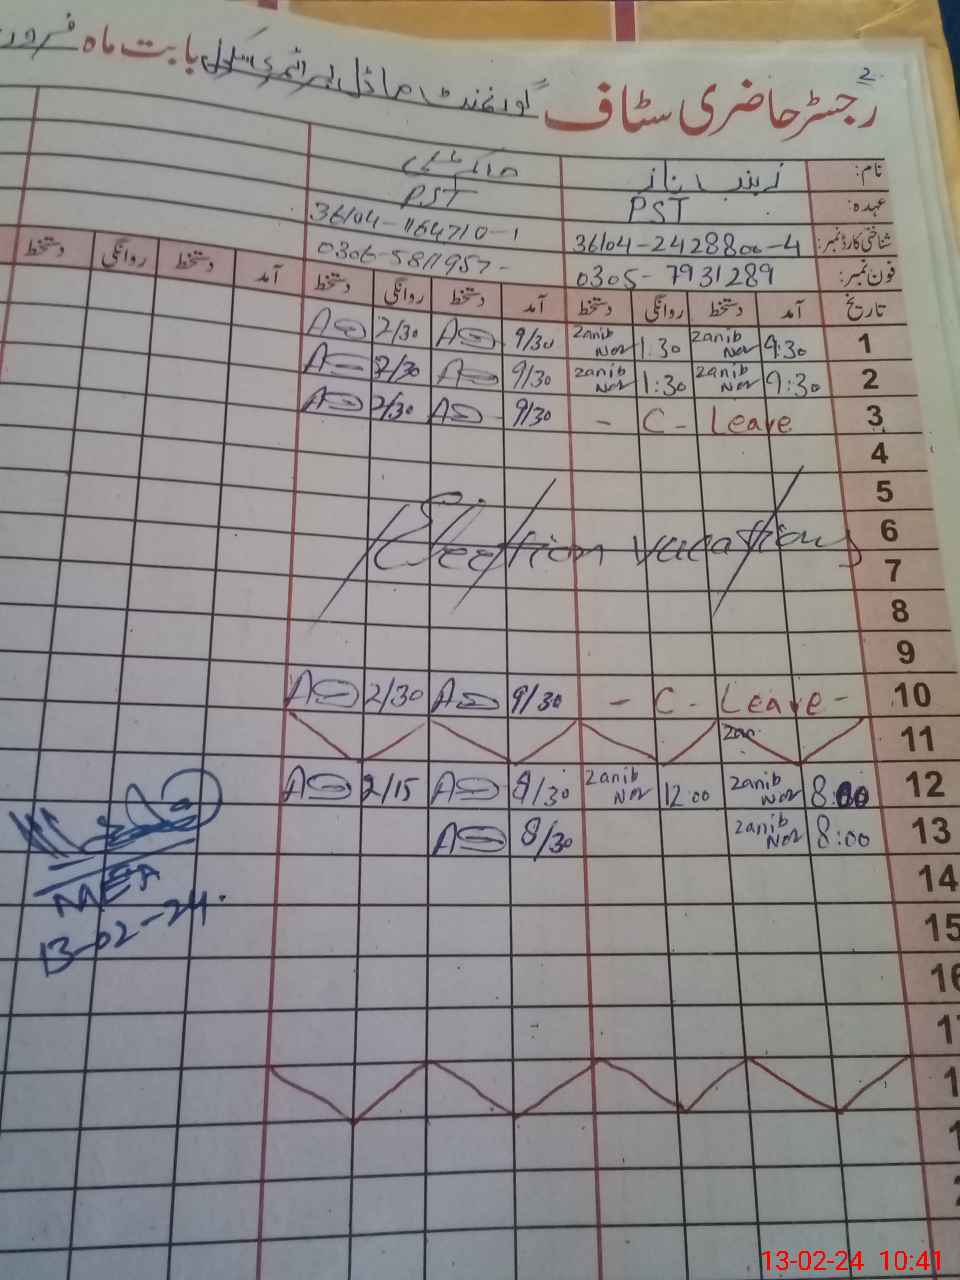 2
رجسٹر حاضری سٹاف گورنمنٹ ماڈل پرائمری سکول بابت ماہ
نام: زینب
عہدہ: PST PST
شناختی کارڈ نمبر: 36104-2428800-4 36104-1164710-1
فون نمبر: 0305-7931289 0306-5811957-
تاریخ آمد دستخط روانگی دستخط آمد دستخط روانگی دستخط آمد دستخط روانگی دستخط
1 9:30 Zanib Noz 1:30 Zanib Noz 9/30 2/30
2 9:30 Zanib Noz 1:30 Zanib Noz 9/30 2/30
3 - C - Leave 9/30 2/30
4
5
6 Election vacations
7
8
9
10 - C - Leave - 9/30 2/30
11 Zan
12 8:00 Zanib Noz 12:00 Zanib Noz 8/30 2/15
13 8:00 Zanib Noz 8/30
14
15
16
MEA
13-02-24.
13-02-24 10:41